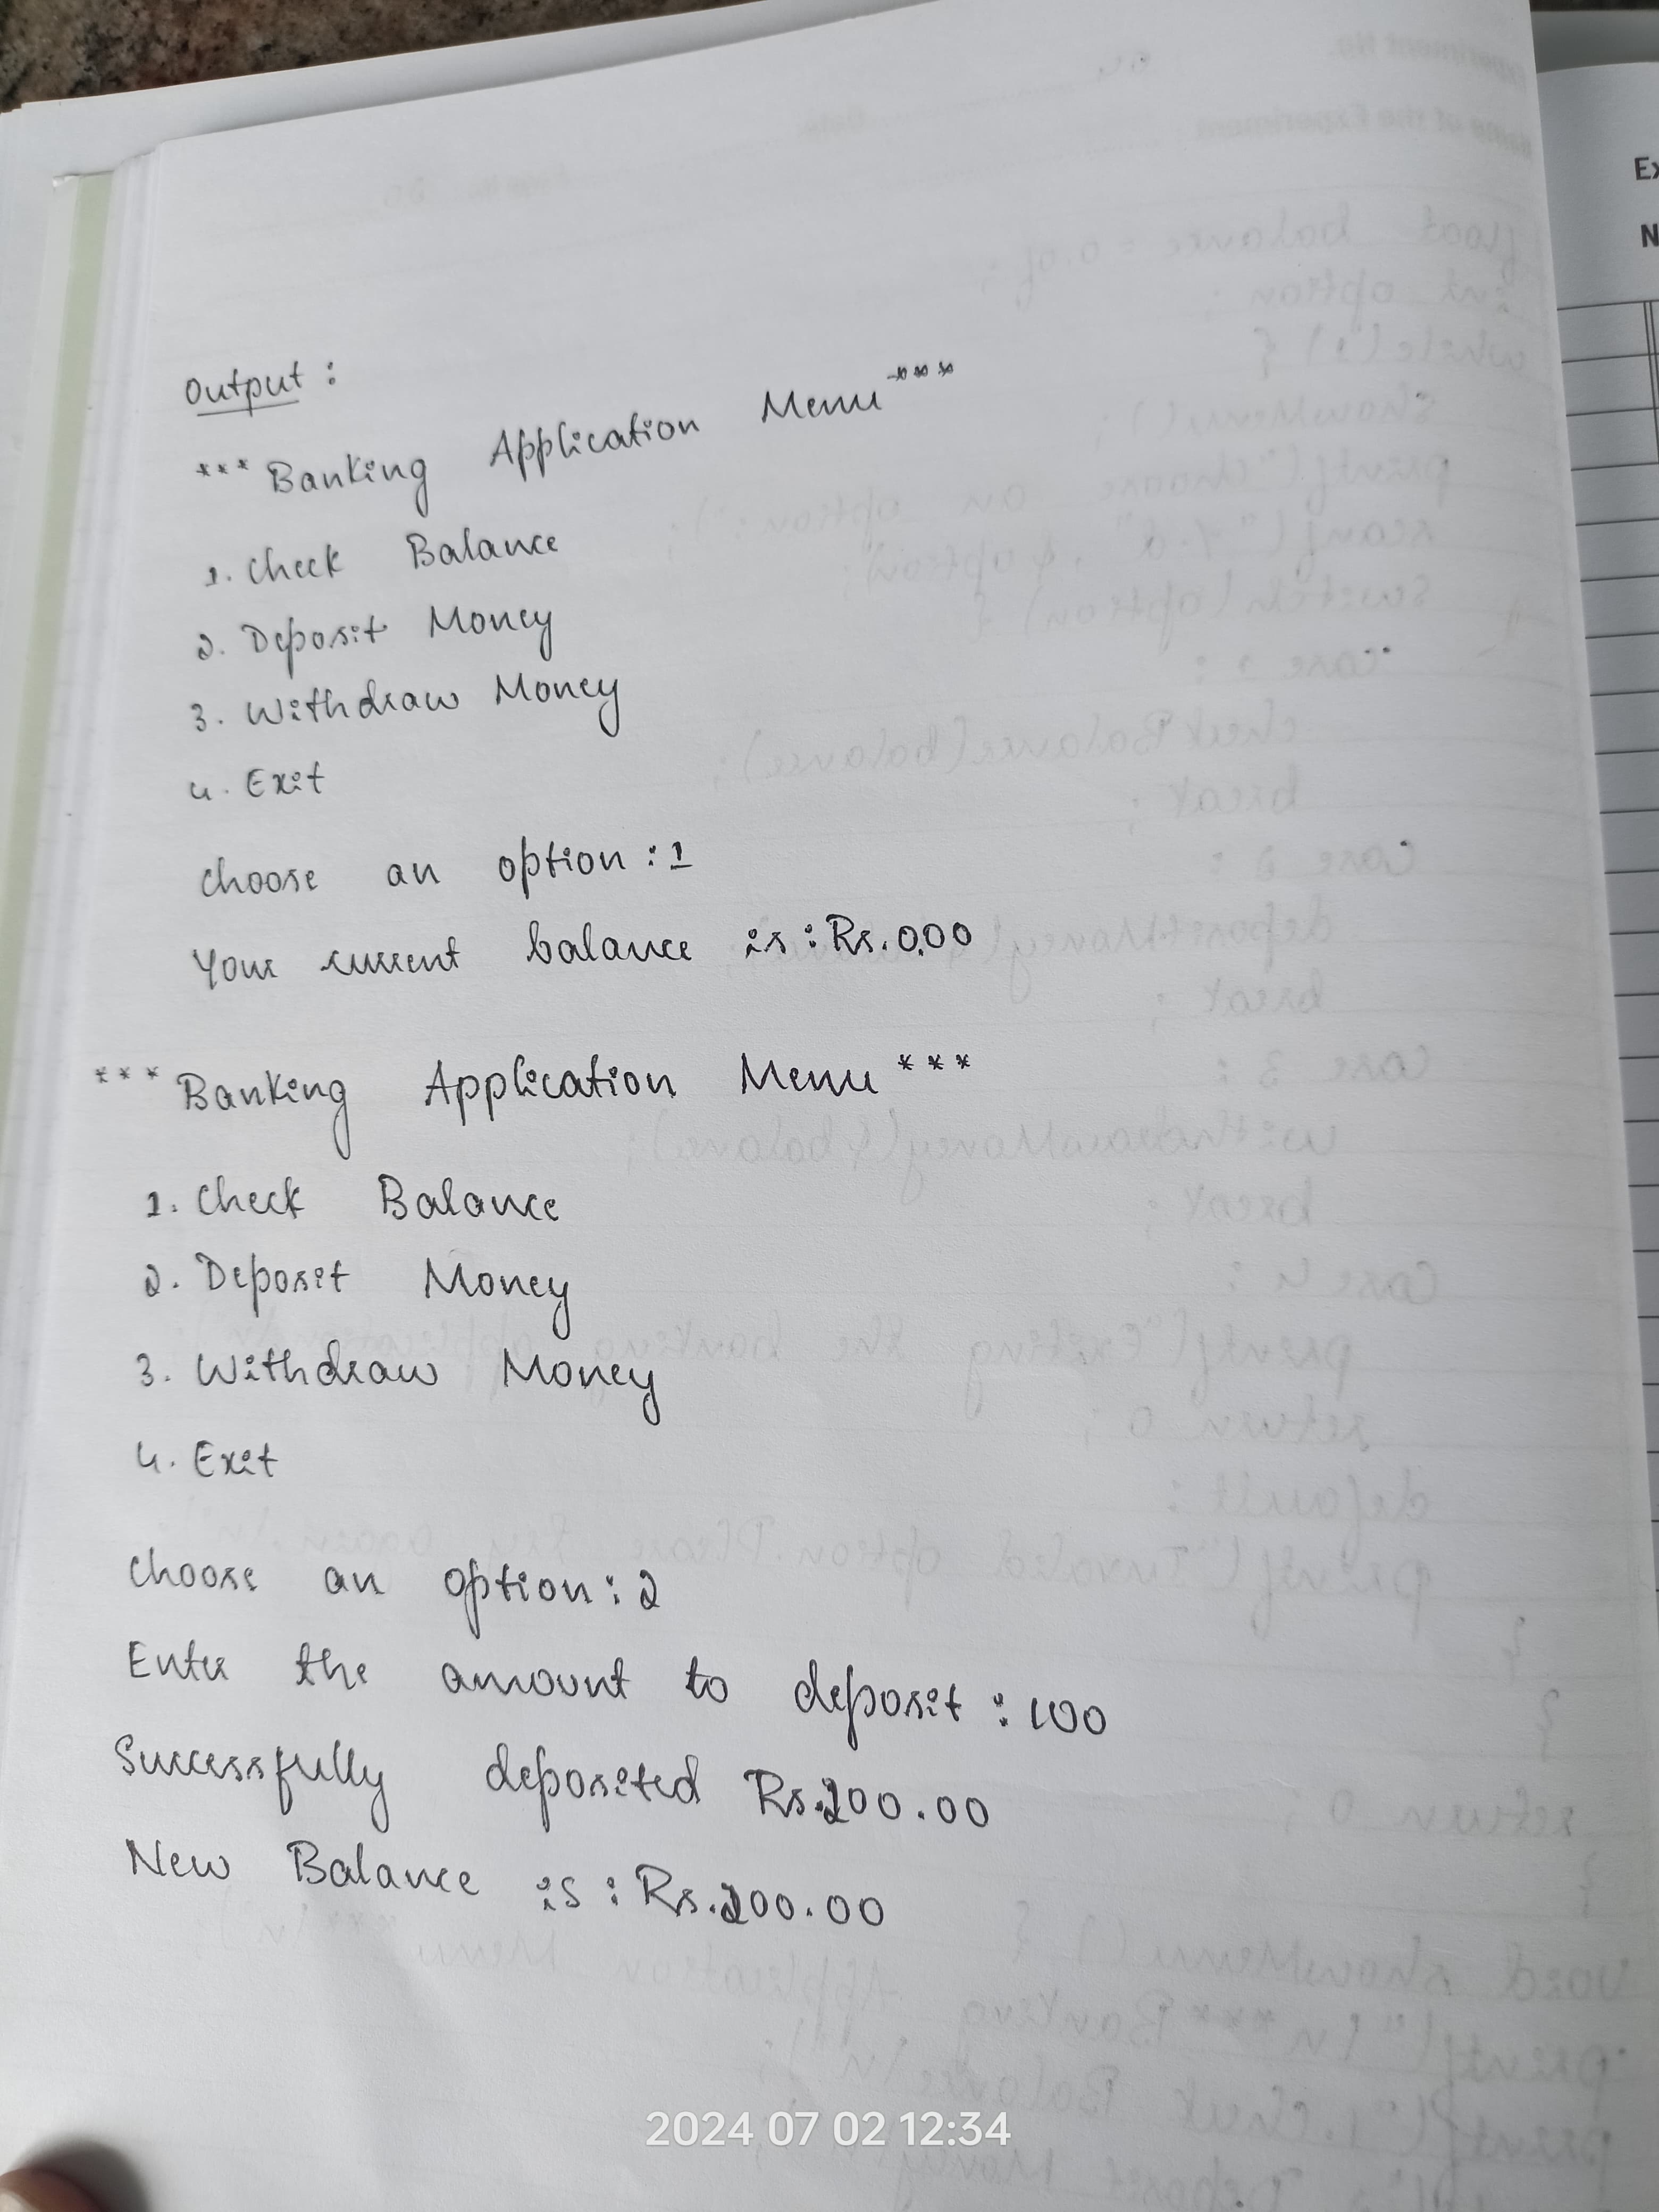 Output :
*** Banking Application Menu ***
1. Check Balance
2. Deposit Money
3. Withdraw Money
4. Exit
choose an option : 1
Your current balance is : Rs. 0.00
*** Banking Application Menu ***
1. Check Balance
2. Deposit Money
3. Withdraw Money
4. Exit
choose an option : 2
Enter the amount to deposit : 100
Successfully deposited Rs.200.00
New Balance is : Rs.200.00
2024 07 02 12:34